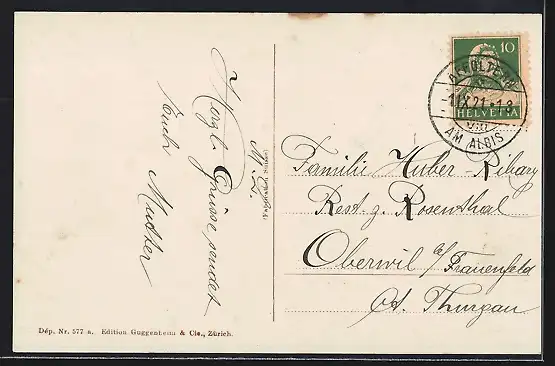 Herzl. Grüsse sendet
Euch Mutter
M. L.
10
HELVETIA
AFFOLTERN
-1.IX.21.-1 8
VIII
AM ALBIS
Familie Huber-Ribary
Rest. z. Rosenthal
Oberwil b/Frauenfeld
Ct. Thurgau
Dép. Nr. 577 a. Edition Guggenheim & Cie., Zürich.